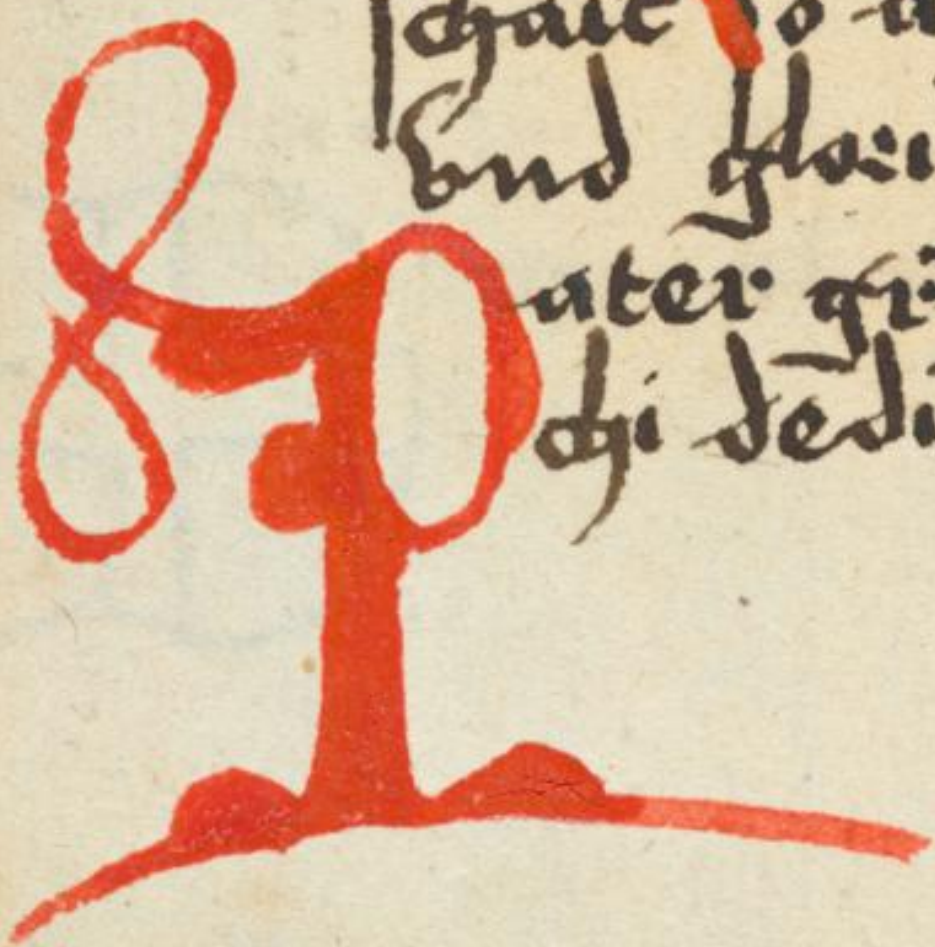 schait so
vnd glori
Pater gr
chi dedi